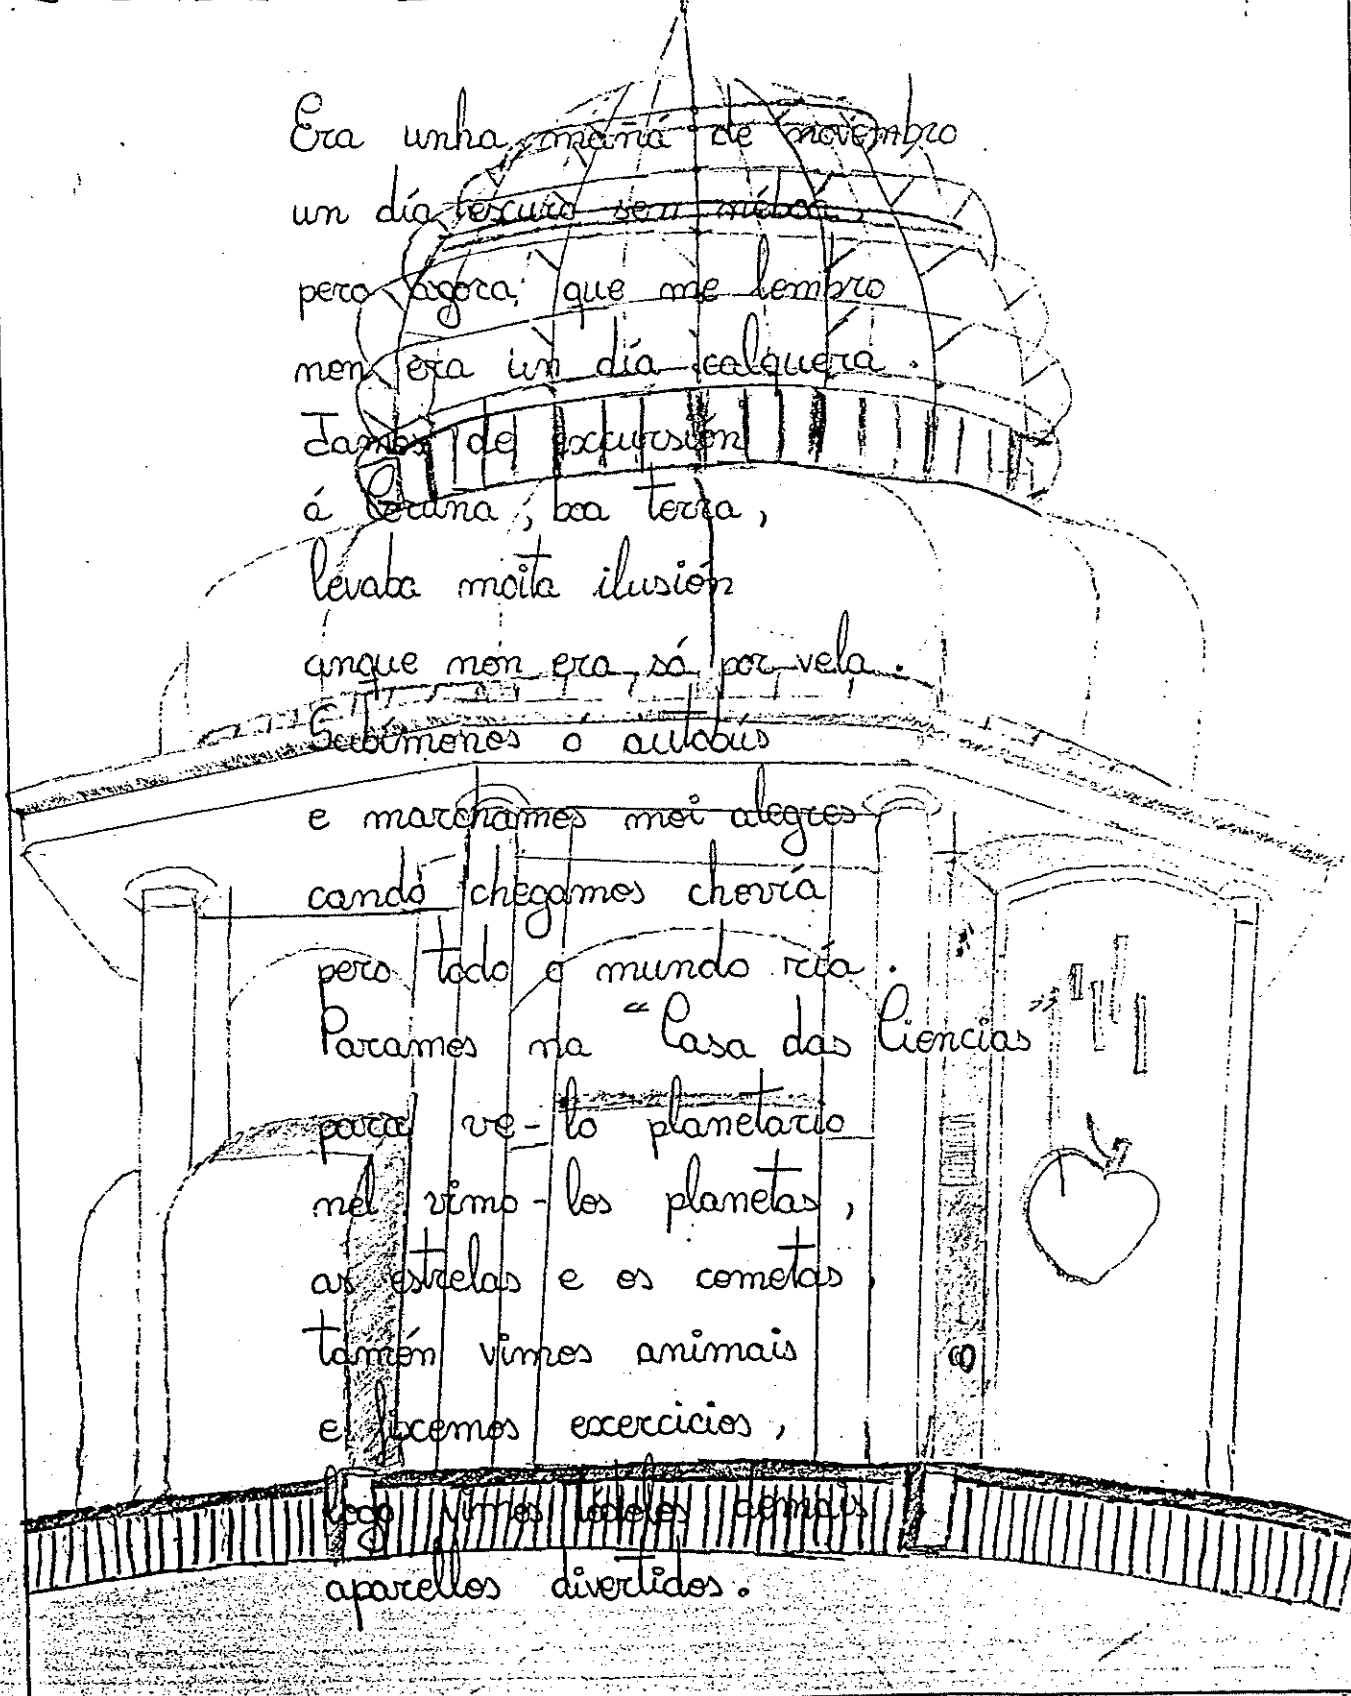 Era unha mañá de novembro
un día escuro sen néboa,
pero agora, que me lembro
non era un día calquera.
Íamos de excursión
á Coruña, boa terra,
levaba moita ilusión
anque non era só por vela.
Subímonos ó autobús
e marchamos moi alegres
cando chegamos chovía
pero todo o mundo ría.
Paramos na "Casa das Ciencias"
para ve-lo planetario
nel vimo-los planetas,
as estrelas e os cometas,
tamén vimos animais
e fixemos exercicios,
logo vimos tódolos demais
aparellos divertidos.